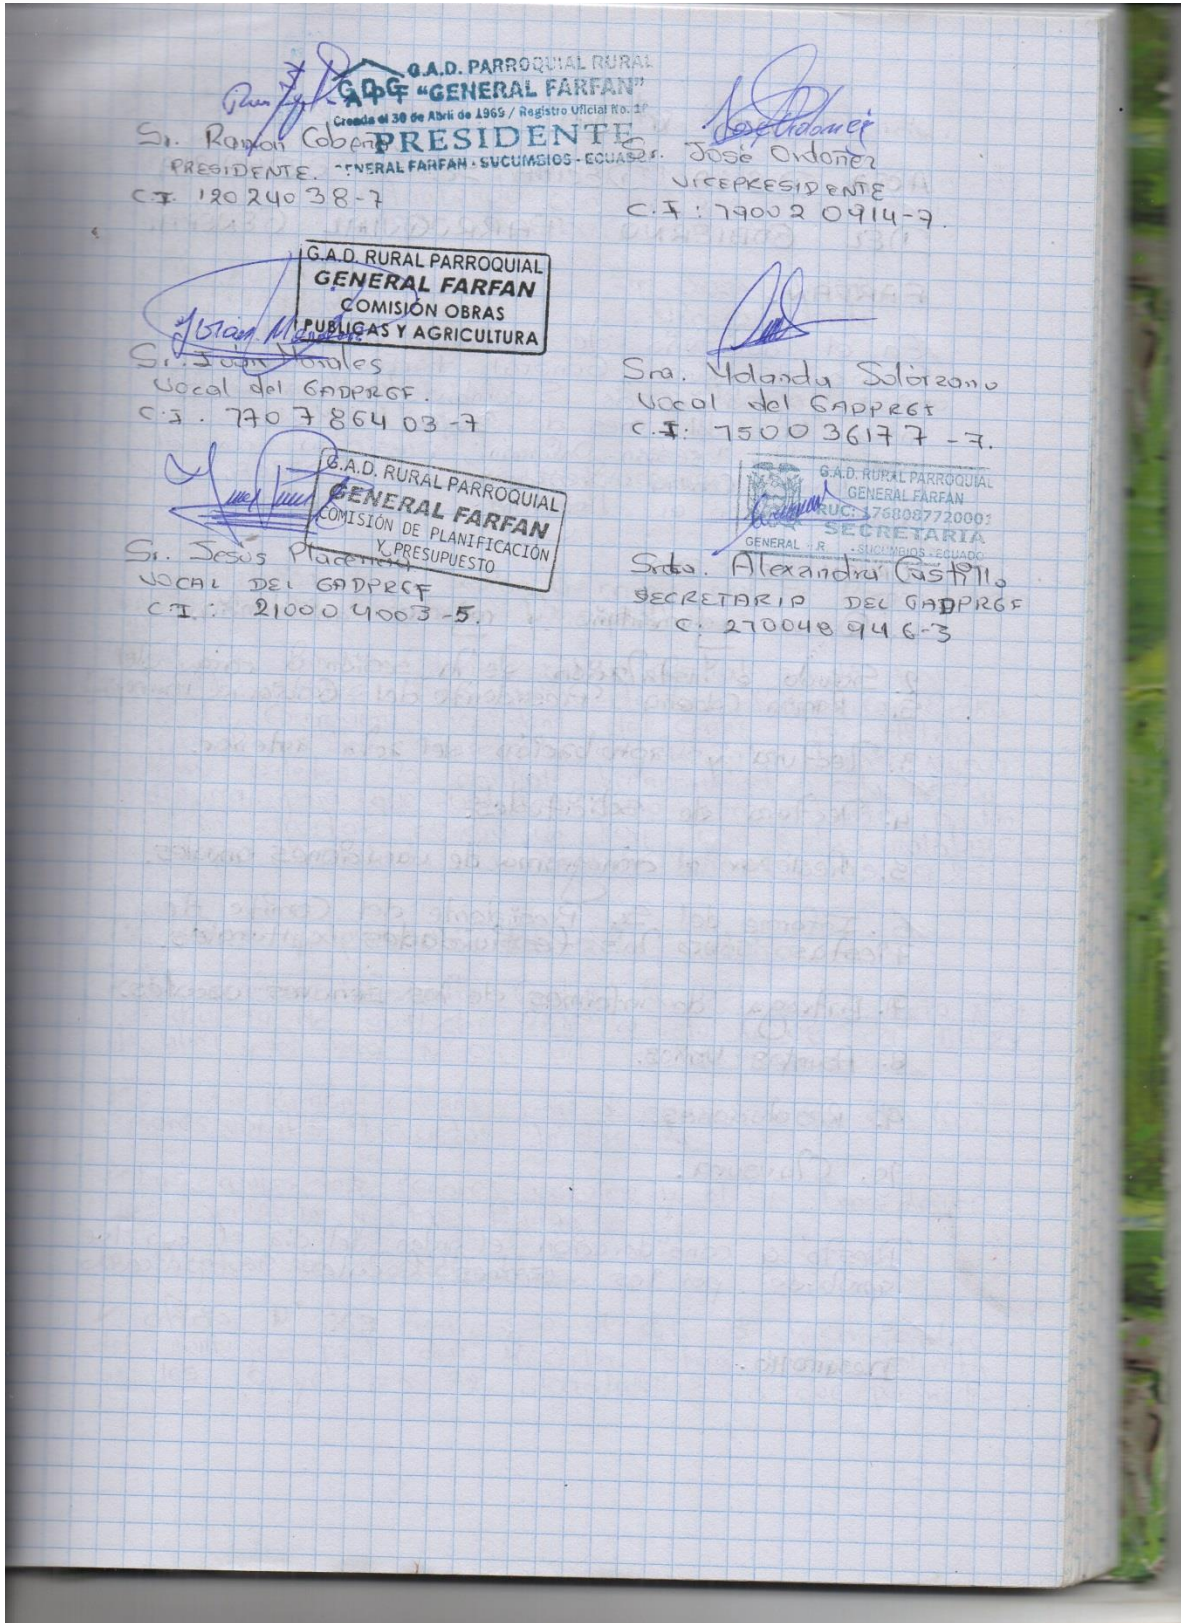 G.A.D. PARROQUIAL RURAL
"GENERAL FARFAN"
Creada el 30 de Abril de 1969 / Registro Oficial No.
PRESIDENTE
GENERAL FARFAN - SUCUMBIOS - ECUADOR
Sr. Ramón Cobeña
PRESIDENTE.
C.I. 120 240 38-7
José Ordoñez
Sr. José Ordoñez
VICEPRESIDENTE
C.I: 79002 0914-7.
G.A.D. RURAL PARROQUIAL
GENERAL FARFAN
COMISIÓN OBRAS
PUBLICAS Y AGRICULTURA
Sr. Juan Morales
Vocal del GADPRGF.
C.I. 770 7 864 03-7
Sra. Yolanda Solórzano
Vocal del GADPRGF
C.I: 750036177-7.
G.A.D. RURAL PARROQUIAL
GENERAL FARFAN
COMISIÓN DE PLANIFICACIÓN
Y PRESUPUESTO
Sr. Jesús Placencia
VOCAL DEL GADPRGF
C.I: 21000 4003-5.
G.A.D. RURAL PARROQUIAL
GENERAL FARFAN
RUC: 1768087720001
SECRETARIA
GENERAL - SUCUMBIOS - ECUADO
Srta. Alexandra Castillo
SECRETARIA DEL GADPRGF
C. 270048946-3